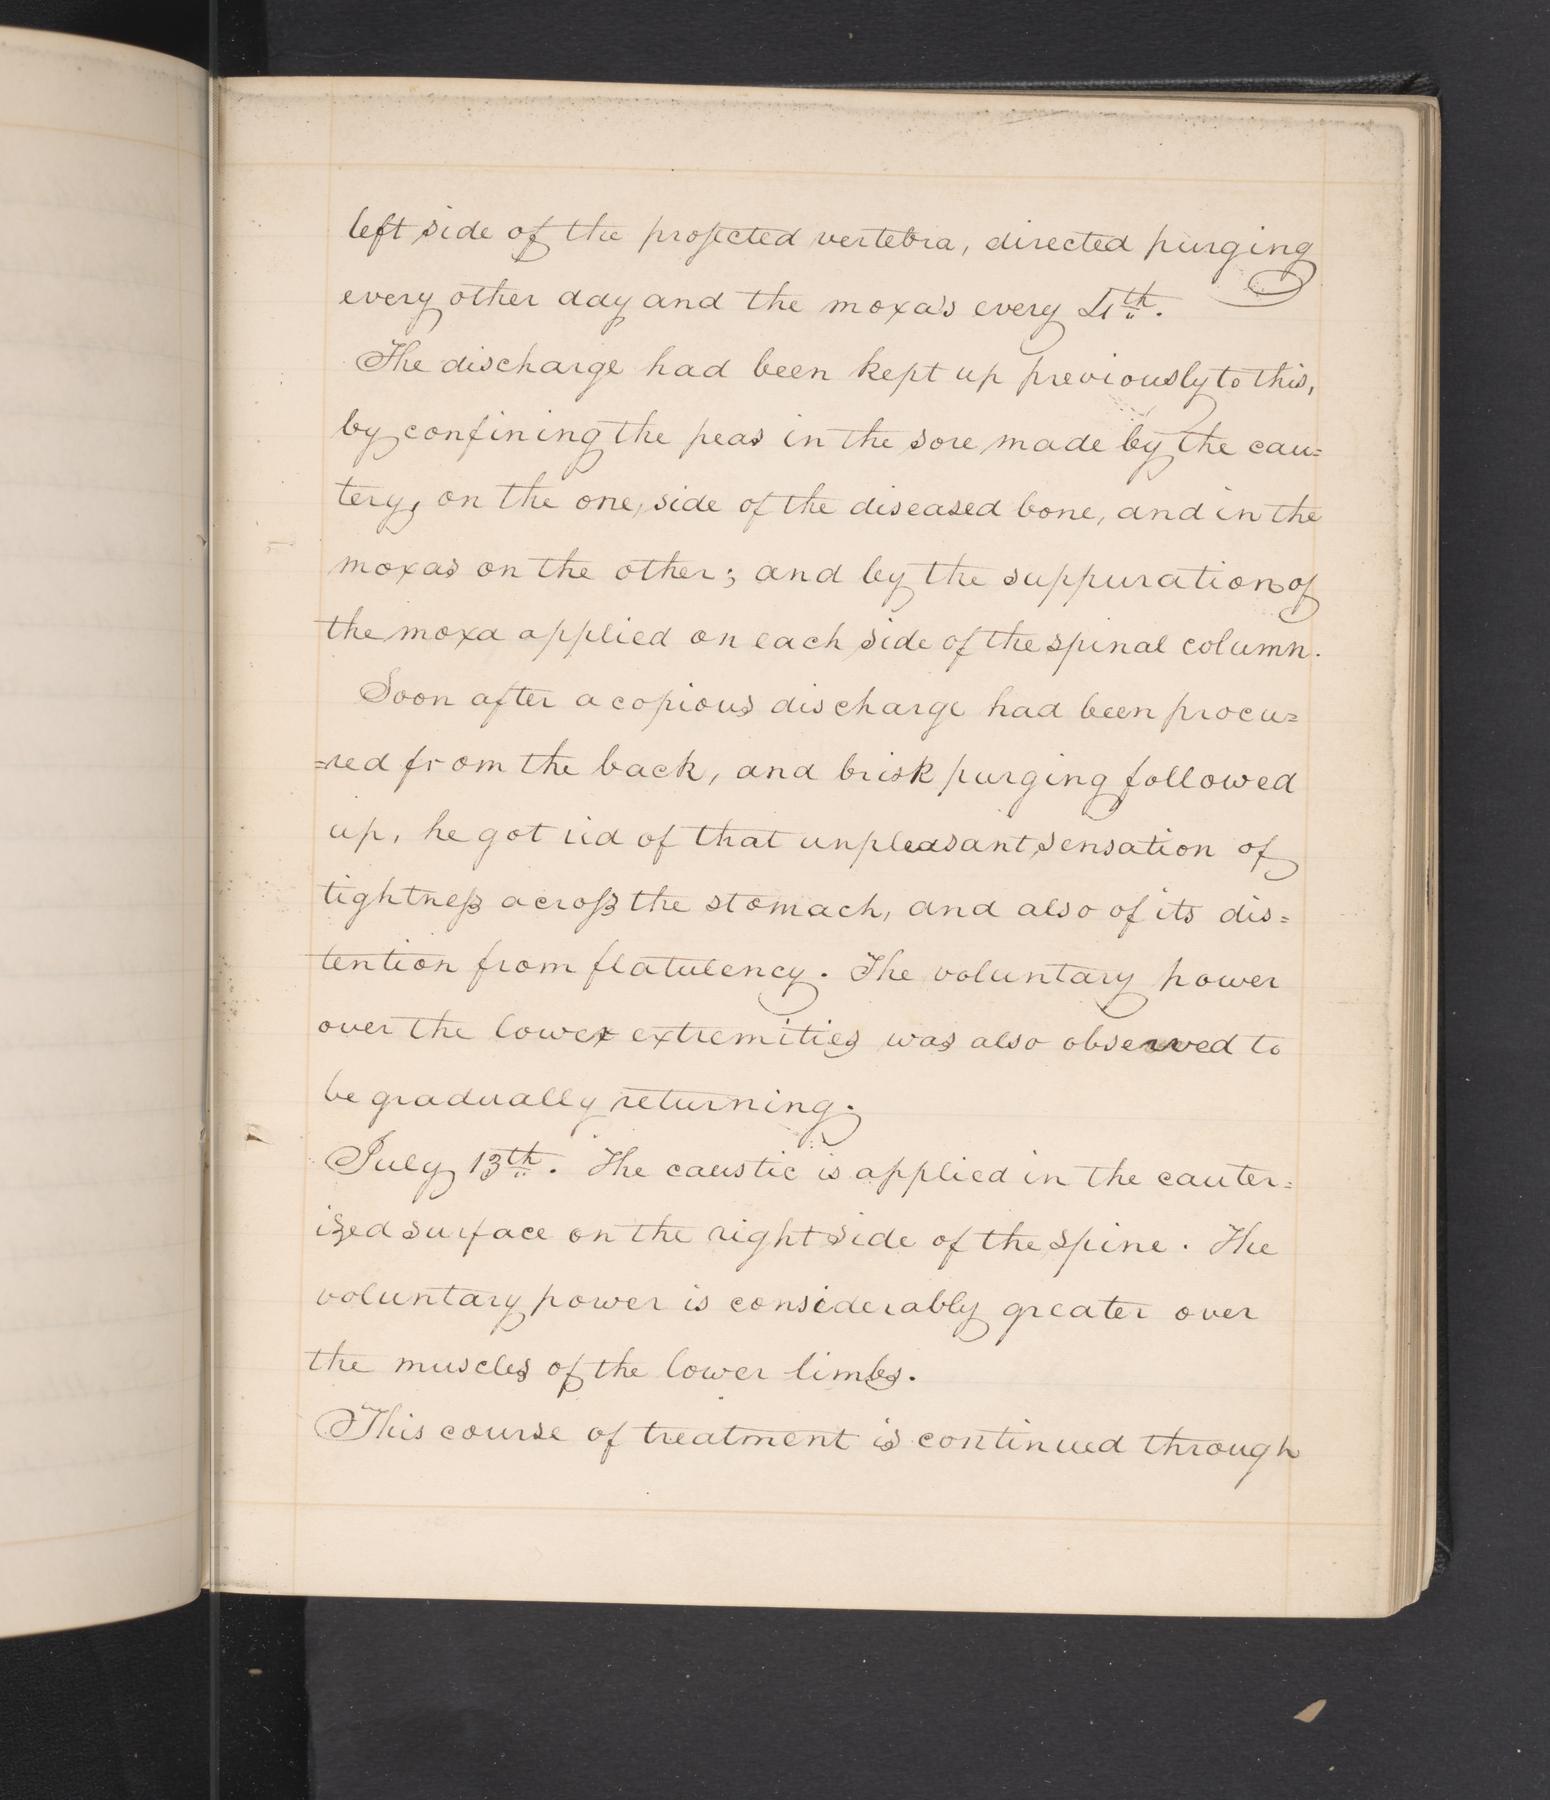 left side of the projected vertebra, directed purging
every other day and the moxa's every 4th.
The discharge had been kept up previously to this,
by confining the peas in the sore made by the cau=
tery, on the one, side of the diseased bone, and in the
moxas on the other; and by the suppuration of
the moxa applied on each side of the spinal column.
Soon after a copious discharge had been procu=
=red from the back, and brisk purging followed
up, he got rid of that unpleasant sensation of
tightneſs acroſs the stomach, and also of its dis=
tention from flatulency. The voluntary power
over the lower extremities was also observed to
be gradually returning.
July 13th. The caustic is applied in the cauter=
ized surface on the right side of the spine. The
voluntary power is considerably greater over
the muscles of the lower limbs.
This course of treatment is continued through